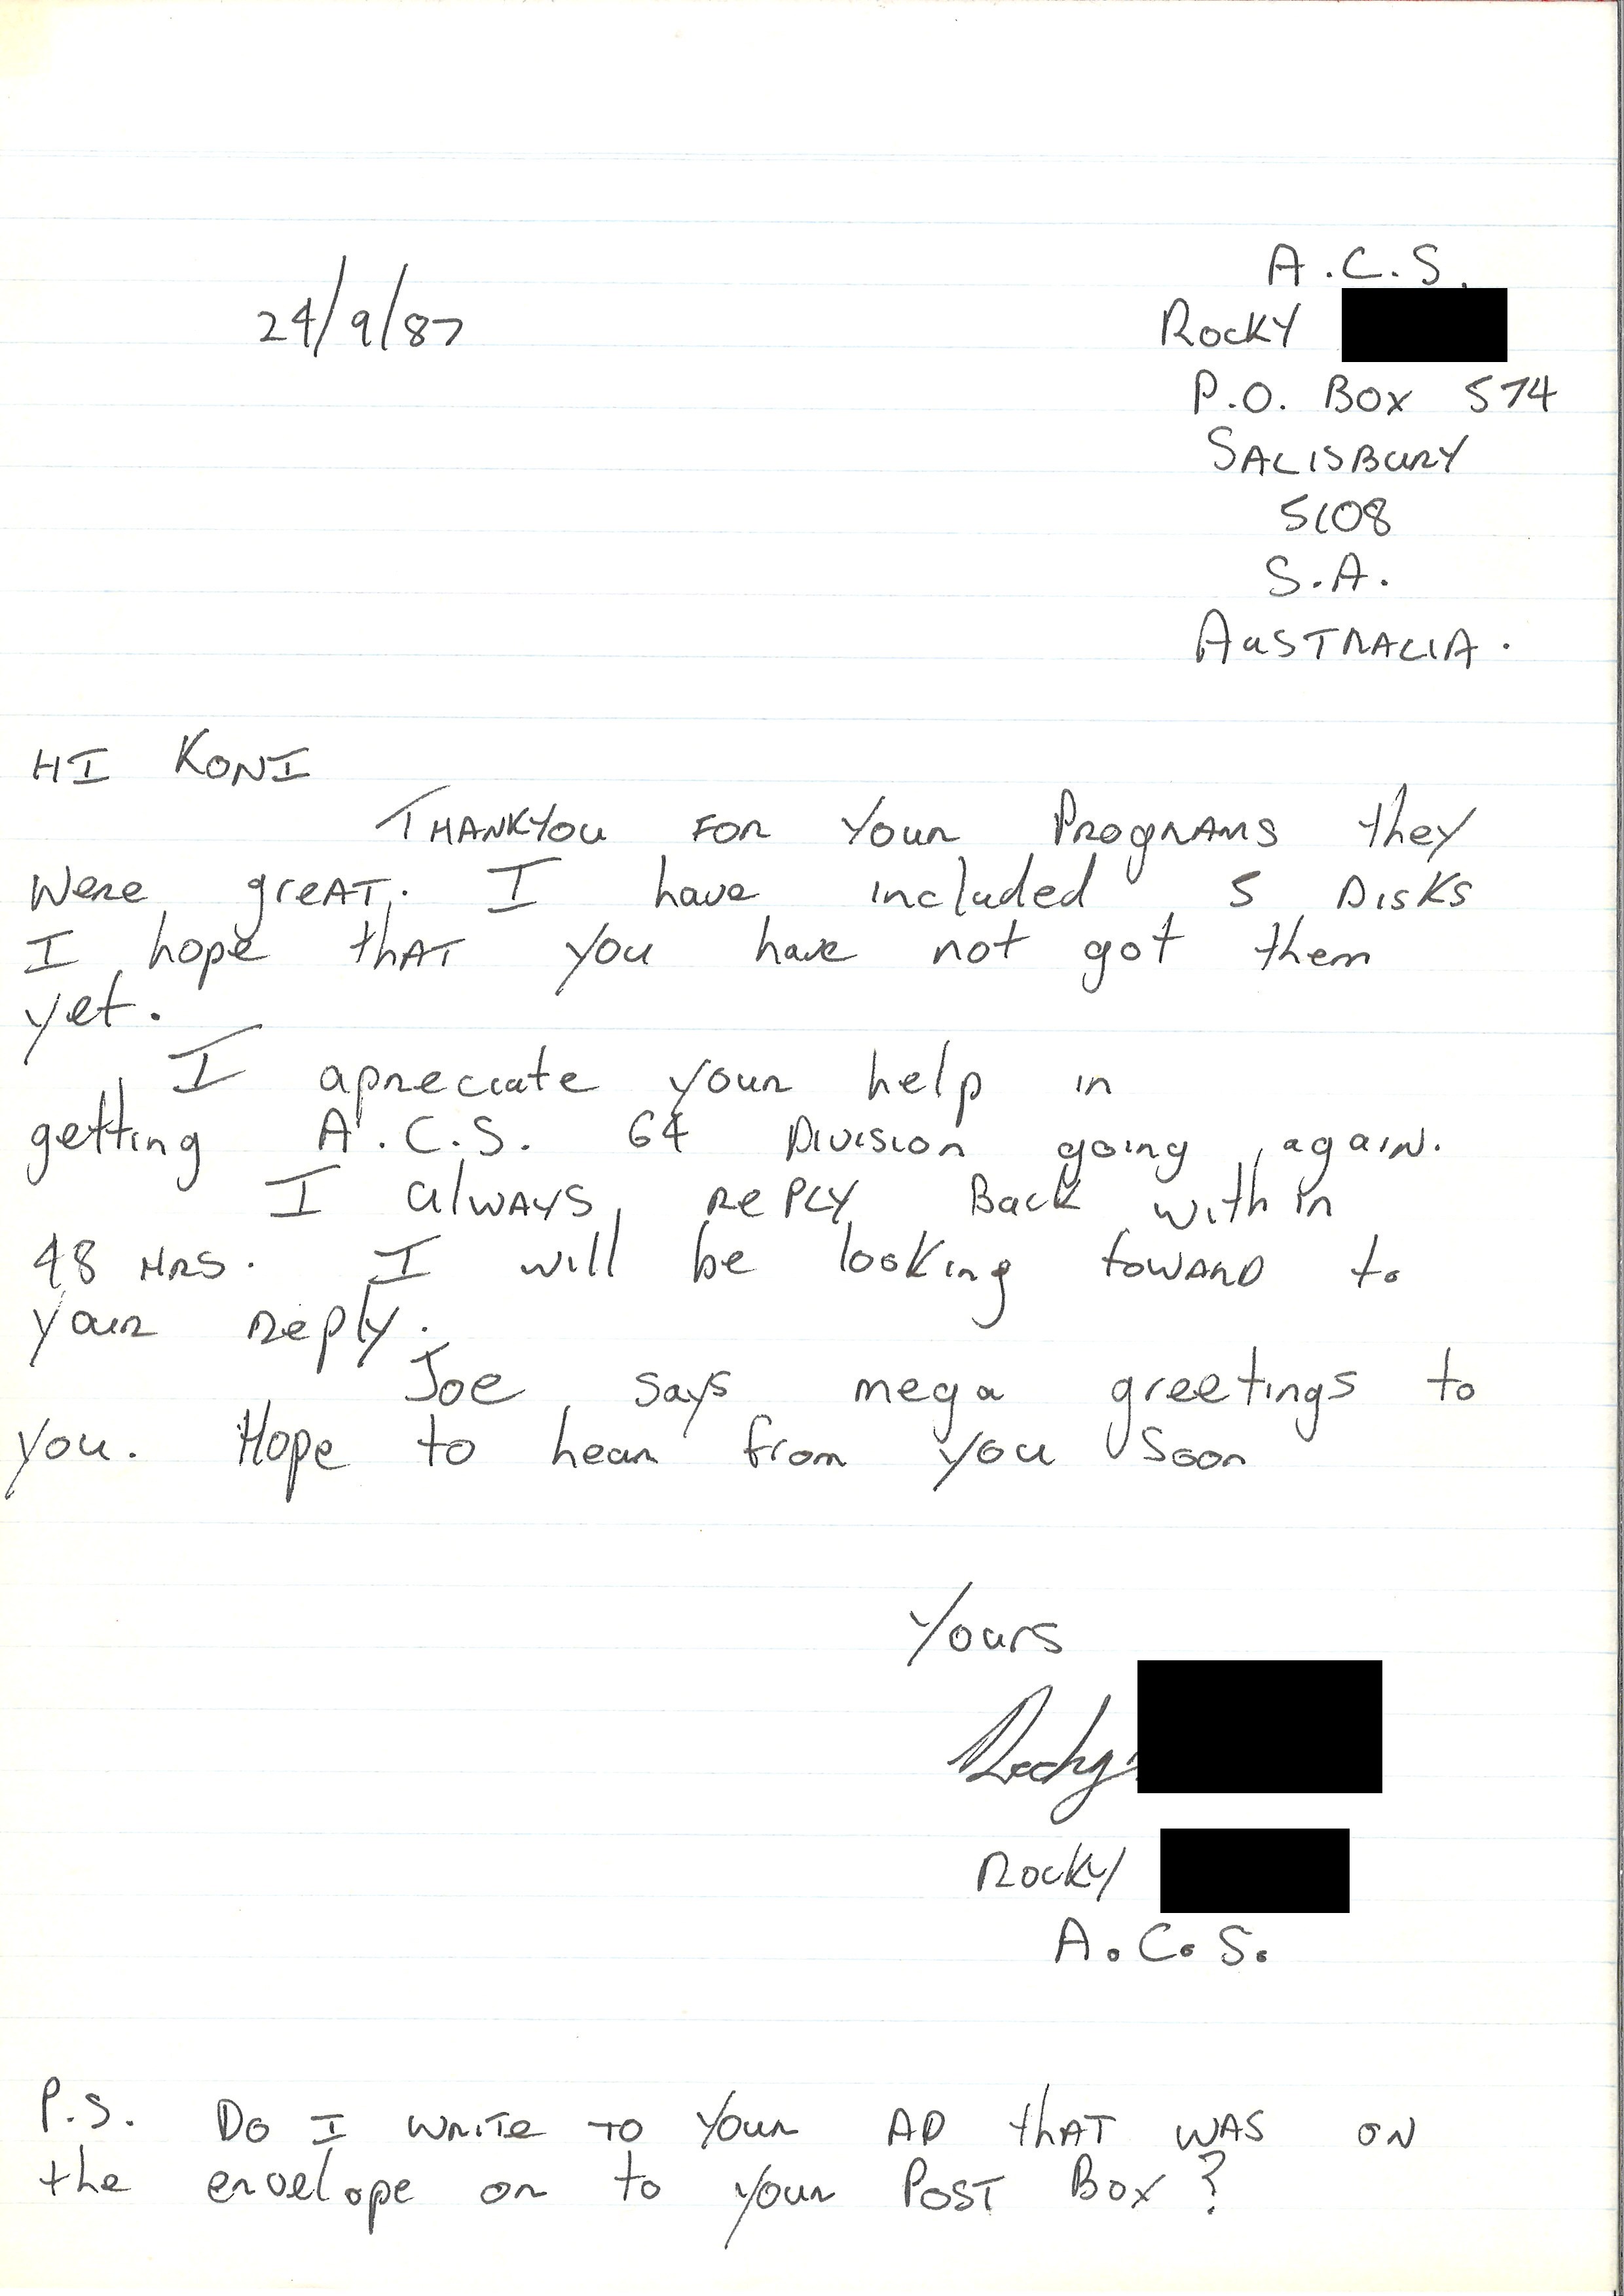 A.C.S.
24/9/87
Rocky
P.O. Box 574
SALISBURY
5108
S.A.
AUSTRALIA.
HI KONI
THANKYOU FOR YOUR PROGRAMS they
Were greAT. I have included 5 DISKS
I hope thAT you have not got them
yet.
I apreciate your help in
getting A.C.S. 64 Division going again.
I always RePLY Back with in
48 HRS. I will be looking toward to
your reply.
Joe says mega greetings to
you. Hope to hear from you Soon
Yours
Rocky
Rocky
A.C.S.
P.S. Do I write to Your AD thAT WAS ON
the envelope or to your POST Box?